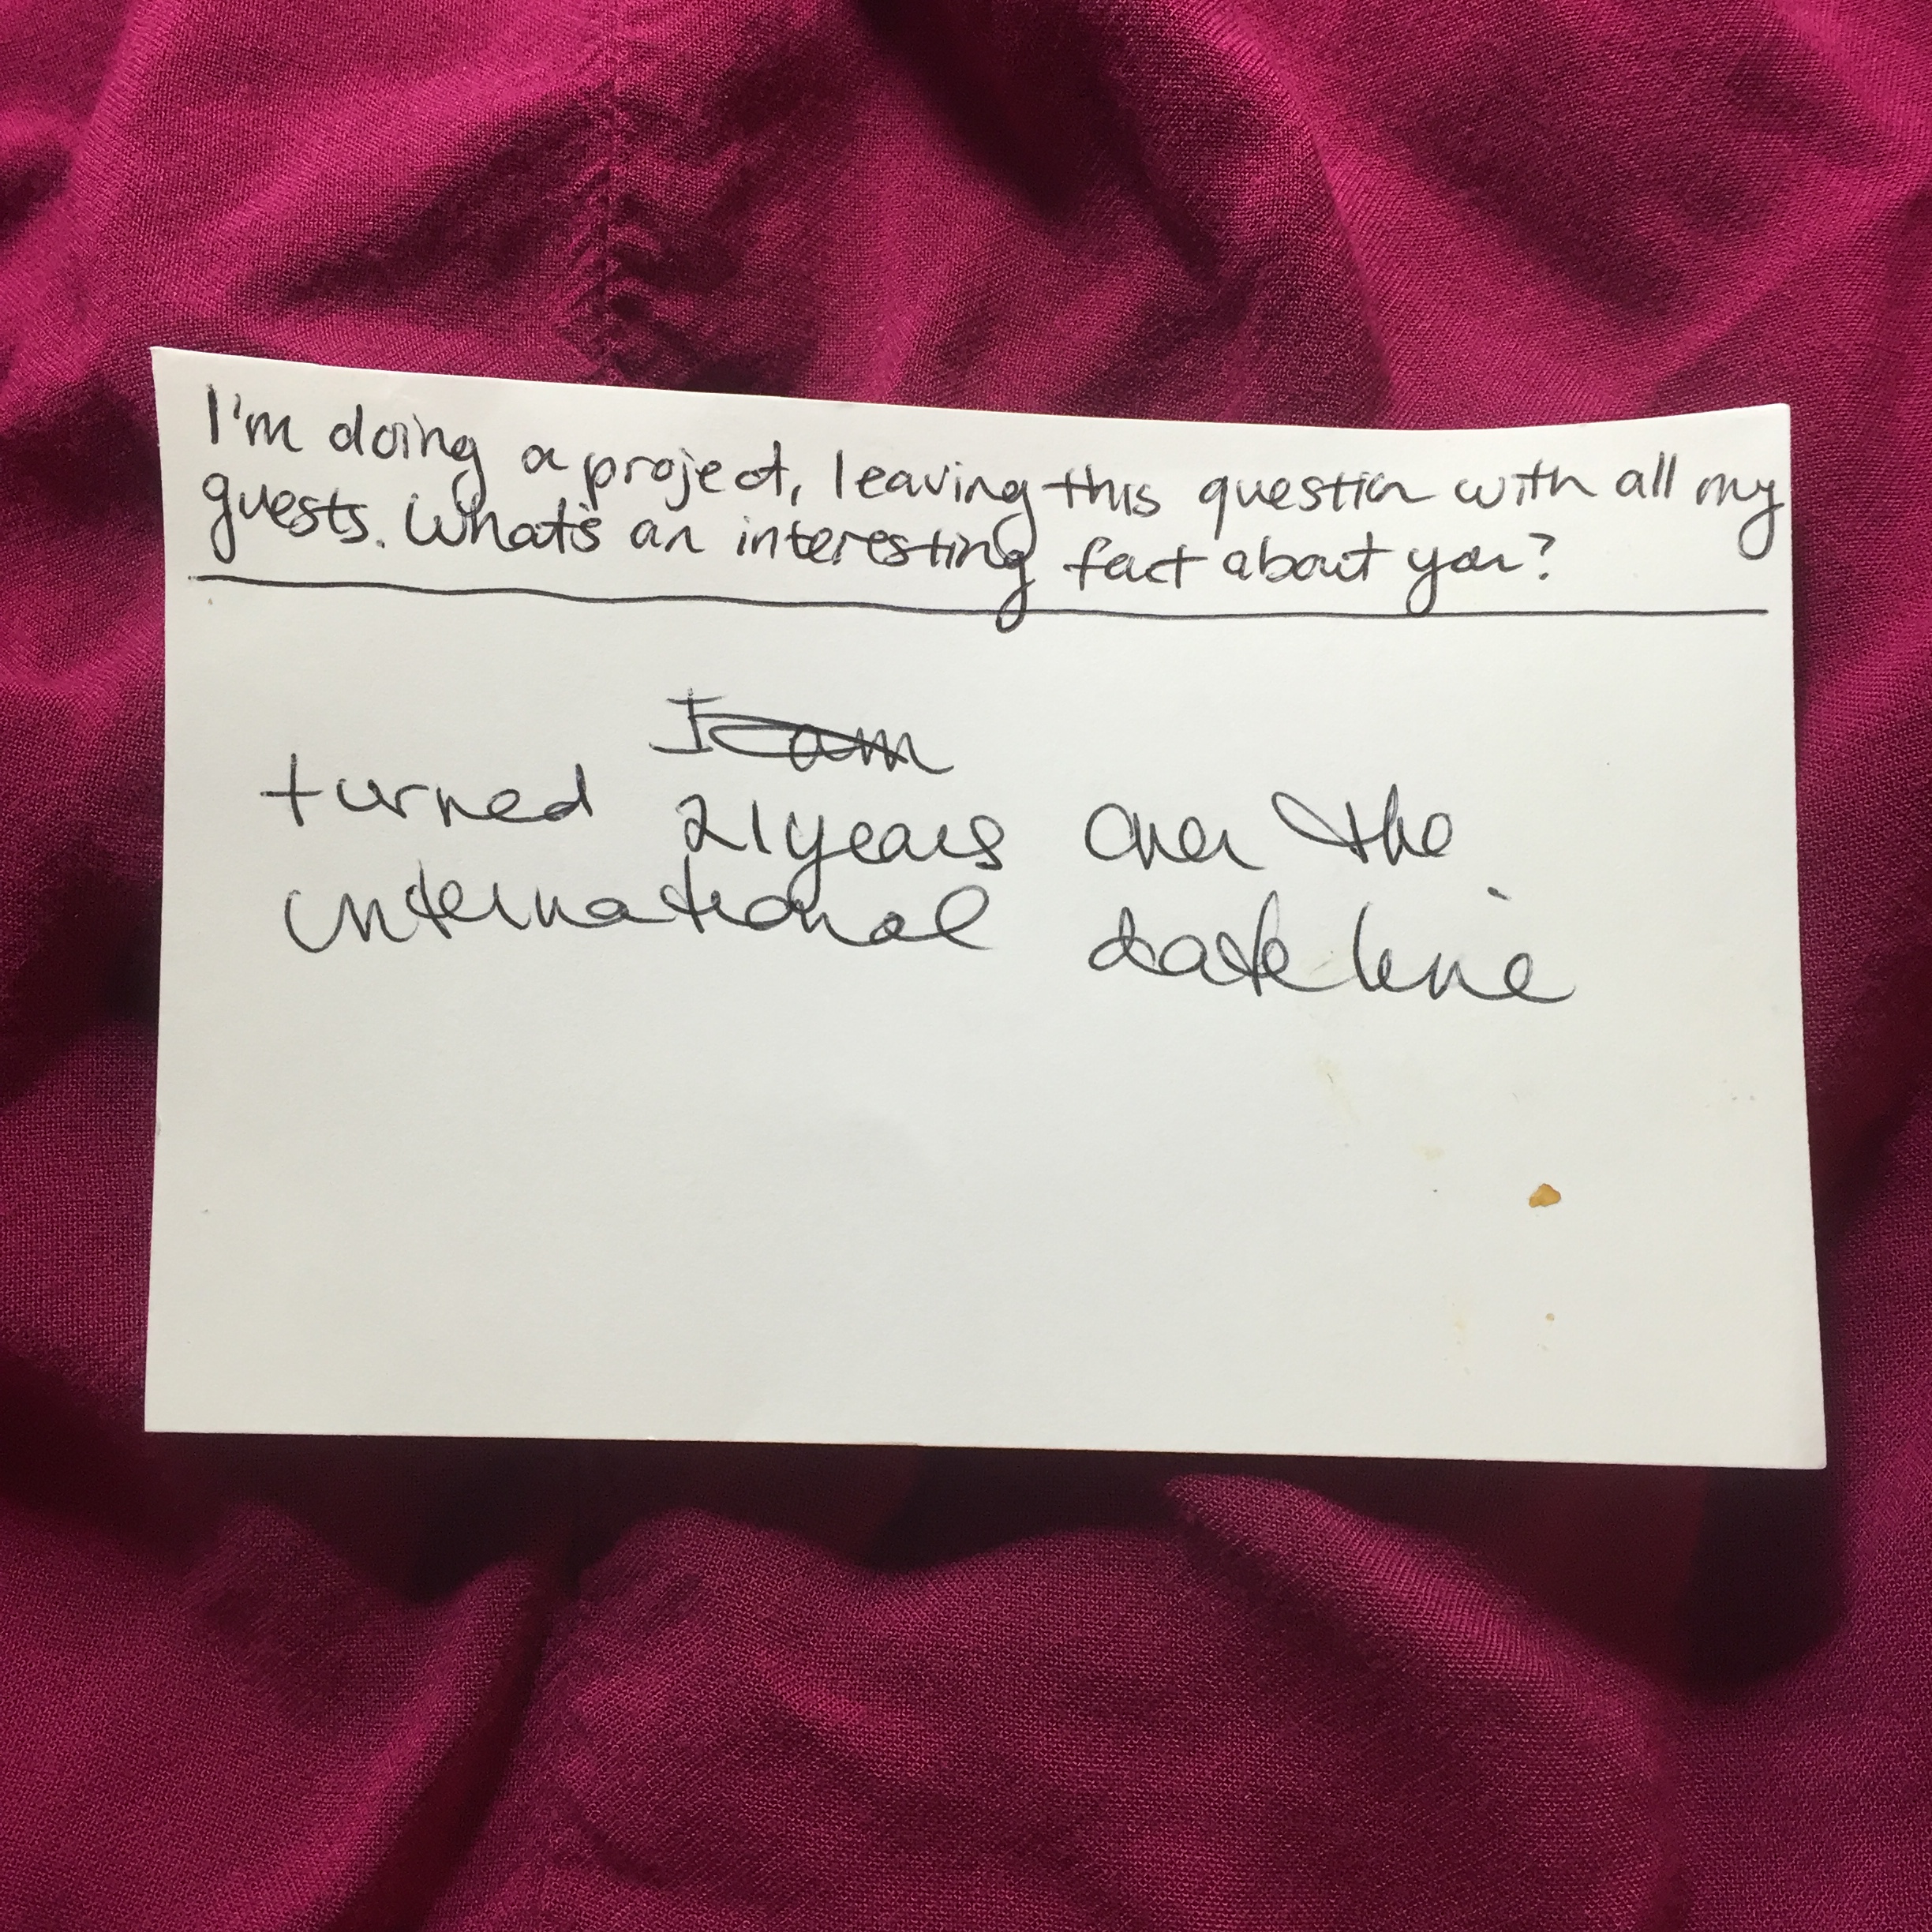 I'm doing a project, leaving this question with all my
guests. What's an interesting fact about you?
I am
turned 21 years over the
international date line